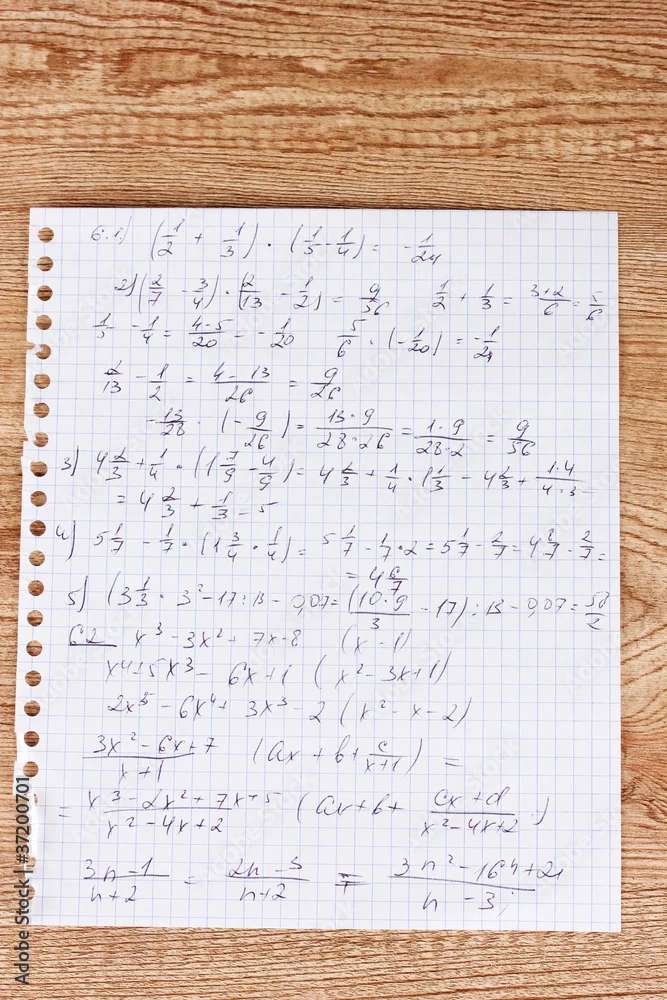 6.1) (1/2 + 1/3) · (1/5 - 1/4) = -1/24
2) (2/7 - 3/4) · (2/13 - 1/2) = 9/56  1/2 + 1/3 = 3+2/6 = 5/6
1/5 - 1/4 = 4-5/20 = -1/20  5/6 · (-1/20) = -1/24
2/13 - 1/2 = 4-13/26 = 9/26
-13/28 · (-9/26) = 13·9/28·26 = 1·9/28·2 = 9/56
3) 4 2/3 + 1/4 · (1 7/9 - 4/9) = 4 2/3 + 1/4 · 1 1/3 = 4 2/3 + 1·4/4·3 =
= 4 2/3 + 1/3 = 5
4) 5 1/7 - 1/7 · (1 3/4 · 1/4) = 5 1/7 - 1/7 · 2 = 5 1/7 - 2/7 = 4 8/7 - 2/7 =
= 4 6/7
5) (3 1/3 · 3² - 17 : 13 - 0,07 = (10·9/3 - 17) : 13 - 0,07 = 50/2
62 x³ - 3x² + 7x - 8 (x - 1)
x⁴ + 5x³ - 6x + 1 (x² - 3x + 1)
2x⁵ - 6x⁴ + 3x³ - 2 (x² - x - 2)
3x² - 6x + 7/x + 1 (ax + b + c/x+1) =
= x³ - 2x² + 7x + 5/x² - 4x + 2 (ax + b + cx + d/x² - 4x + 2)
3n - 1/n + 2 = 2n - 3/n + 2 = 3n² - 16n + 21/n - 3;
Adobe Stock | #37200701